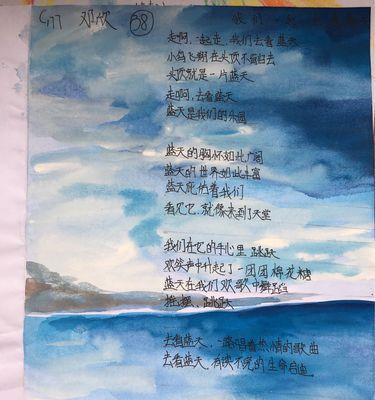 邓欣 58
我们一起去看蓝天
走啊,一起走,我们去看蓝天
小鸟飞翔在头顶不愿归去
头顶就是一片蓝天
走啊,去看蓝天
蓝天是我们的乐园
蓝天的胸怀如此广阔
蓝天的世界如此丰富
蓝天庇护着我们
看见它,就像来到了天堂
我们在它的手心里跳跃
欢笑声中升起了一团团棉花糖
蓝天在我们欢歌中舞蹈
跳跃
去看蓝天,一路唱着热情的歌曲
去看蓝天,有读不完的生命启迪